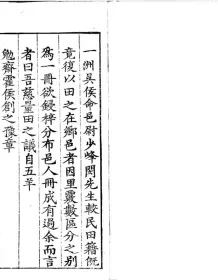 一洲吳侯命邑尉少峰閔先生較民田籍旣
竟復以田之在鄉邑者因里覈數區分之別
爲一冊欲鋟梓分布邑人冊成有過余而言
者曰吾慈量田之議自五羊
勉齋霍侯創之豫章